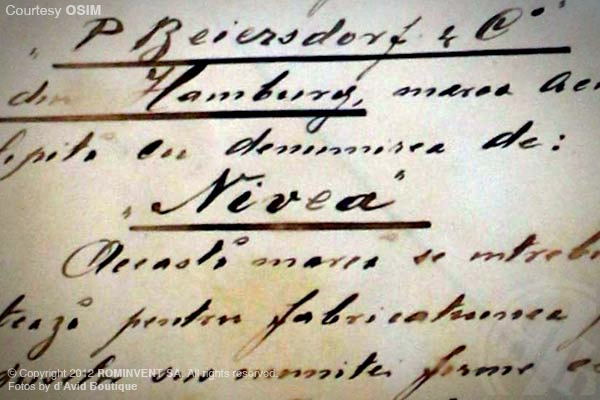 Courtesy OSIM
„P Beiersdorf & Cº"
din Hamburg, marca ace
lipită cu denumirea de:
„Nivea"
Această marcă se intrebu
tează pentru fabricatiunea
sub anumite forme
© Copyright 2012 ROMINVENT SA. All rights reserved.
Fotos by d'Avid Boutique